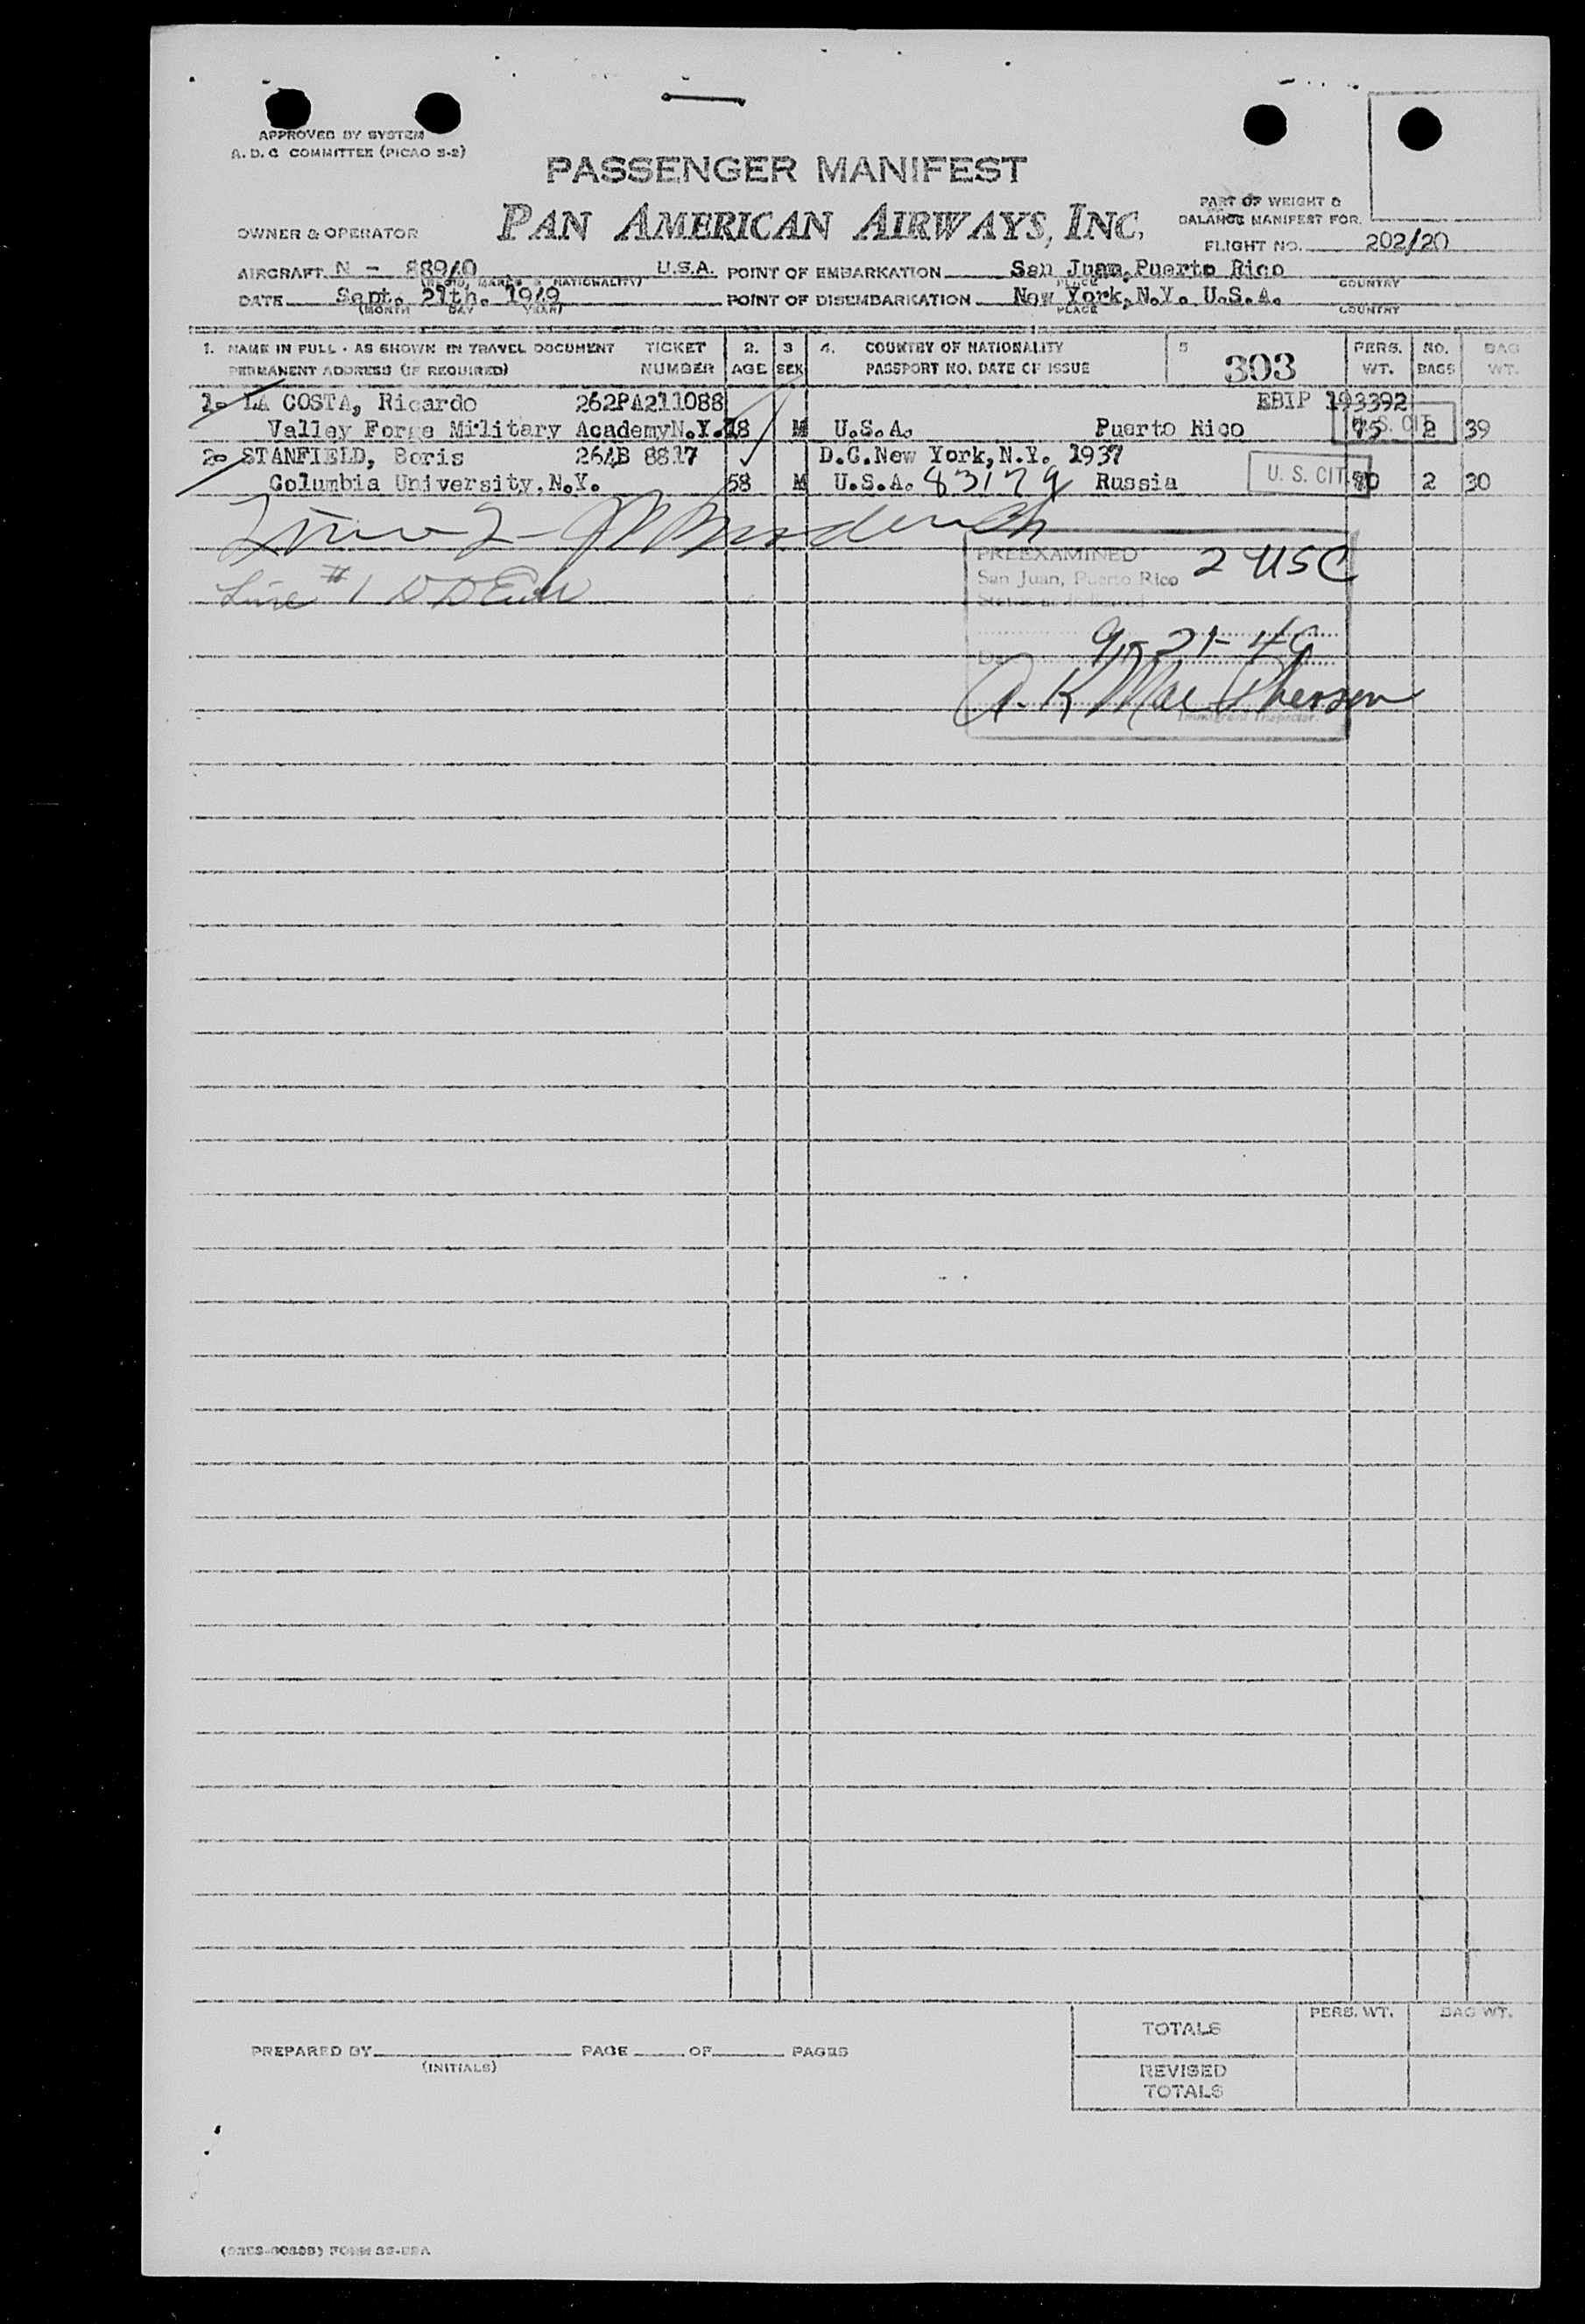 APPROVED BY SYSTEM
A. D. C COMMITTEE (PICAO S-2)
PASSENGER MANIFEST
PAN AMERICAN AIRWAYS, INC.
PART OF WEIGHT &
BALANCE MANIFEST FOR
OWNER & OPERATOR
FLIGHT NO. 202/20
AIRCRAFT N - 88940 U.S.A. POINT OF EMBARKATION San Juan, Puerto Rico
(REGIS, MARKS & NATIONALITY) PLACE COUNTRY
DATE Sept. 21th. 1949 POINT OF DISEMBARKATION New York, N.Y. U.S.A.
(MONTH DAY YEAR) PLACE COUNTRY
1. NAME IN FULL - AS SHOWN IN TRAVEL DOCUMENT TICKET 2. 3 4. COUNTRY OF NATIONALITY 5 303 PERS. NO. BAG
PERMANENT ADDRESS (IF REQUIRED) NUMBER AGE SEX PASSPORT NO. DATE OF ISSUE WT. BAGS WT.
1- LA COSTA, Ricardo 262PA211088 EBIP 193392
Valley Forge Military Academy N.Y. 18 M U.S.A. Puerto Rico U. S. CIT. 75 2 39
2- STANFIELD, Boris 264B 8817 D.C. New York, N.Y. 1937
Columbia University, N.Y. 58 M U.S.A. 83179 Russia U. S. CIT. 2 30
PREEXAMINED 2 USC
San Juan, Puerto Rico
Line # 1
9-21-49
A. K. MacPherson
Immigrant Inspector.
TOTALS PERS. WT. BAG WT.
PREPARED BY PAGE OF PAGES
(INITIALS)
REVISED
TOTALS